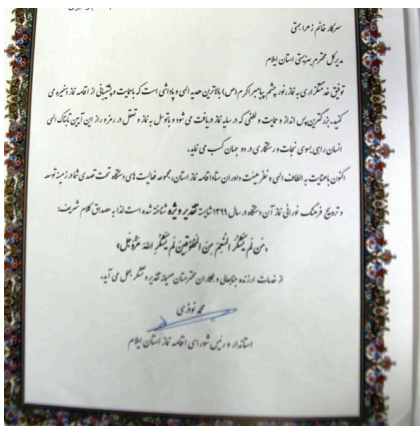 سرکار خانم زهرا همتی
مدیرکل محترم بهزیستی استان ایلام
توفیق خدمتگزاری به نماز، نور چشم پیامبر اکرم (ص) بالاترین هدیه الهی و پاداشی است که با حمایت و پشتیبانی از اقامه نماز ذخیره می
کنید. بزرگترین پس انداز و حمایت و لطفی که در سایه نماز دریافت می شود و با توسل به نماز و تعقل در رمز و راز این آیین تابناک الهی
انسان راهی بسوی نجات و رستگاری در دو جهان کسب می نماید.
اکنون با عنایت به الطاف الهی و نظر هیئت داوران ستاد اقامه نماز استان، مجموعه فعالیت های دستگاه تحت تصدی شما در زمینه توسعه
و ترویج فرهنگ نورانی نماز آن دستگاه در سال ۱۳۹۹ شایسته تقدیر ویژه شناخته شده است لذا به مصداق کلام شریف:
«مَن لَم یَشکُرِ المُنعِمَ مِنَ المَخلوقینَ لَم یَشکُرِ اللهَ عَزَّوَجَل»
از خدمات ارزنده جنابعالی و همکاران محترمتان صمیمانه تقدیر و تشکر بعمل می آید.
محمد نوذری
استاندار و رئیس شورای اقامه نماز استان ایلام